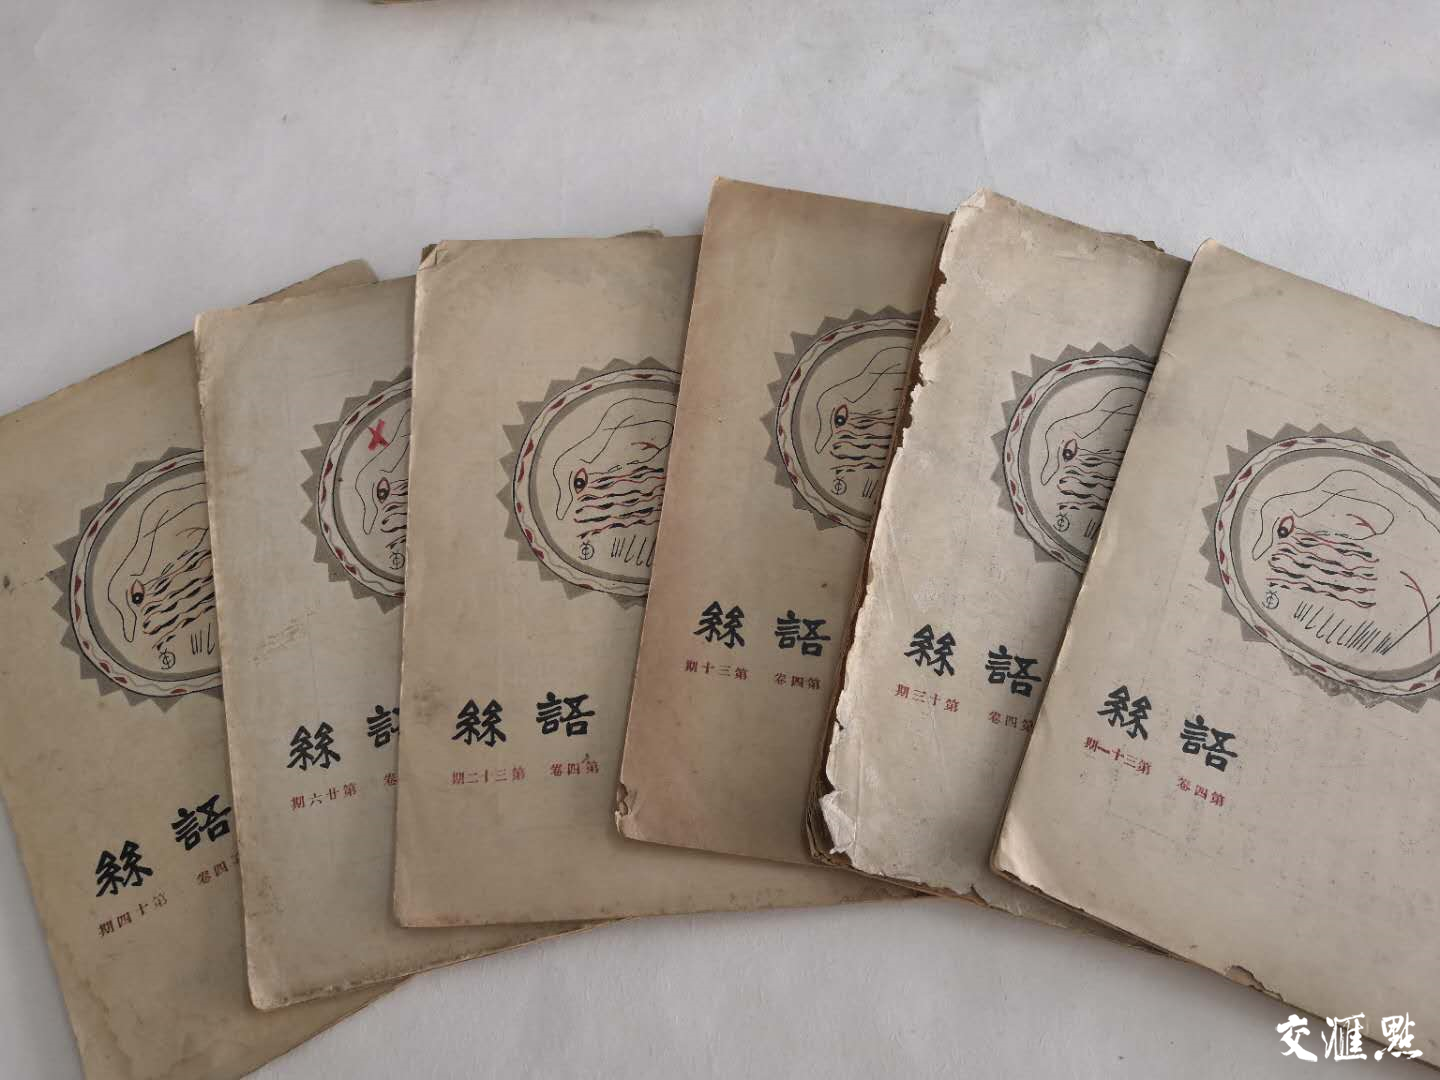 語絲
第四卷 第十四期
語絲
卷 第廿六期
語絲
第四卷 第三十二期
語絲
第四卷 第三十期
語絲
第四卷 第十三期
語絲
第四卷 第三十一期
交滙點